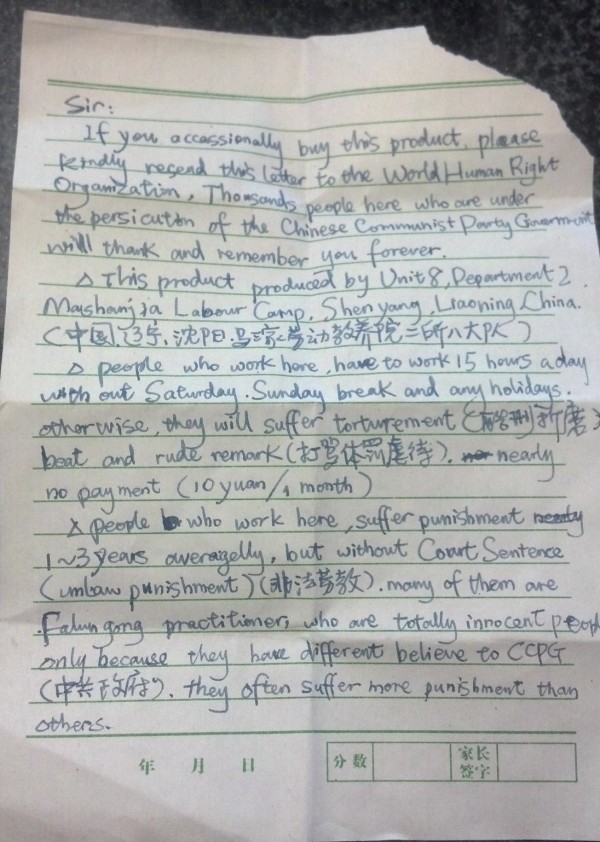 Sir:
If you occassionally buy this product, please
kindly resend this letter to the World Human Right
Organization. Thousands people here who are under
the persicution of the Chinese Communist Party Goverment
will thank and remember you forever.
△ This product produced by Unit 8, Department 2
Mashanjia Labour Camp, Shenyang, Liaoning, China.
(中国,辽宁,沈阳,马三家劳动教养院二所八大队)
△ people who work here, have to work 15 hours a day
with out Saturday. Sunday break and any holidays.
otherwise, they will suffer torturement (折磨)
beat and rude remark (打骂体罚虐待). nearly
no payment (10 yuan/1 month)
△ people who work here, suffer punishment
1~3 years averagelly, but without Court Sentence
(unlaw punishment) (非法劳教). many of them are
Falun gong practitioner, who are totally innocent people
only because they have different believe to CCPG
(中共政府). they often suffer more punishment than
others.
年 月 日 分数 家长
签字